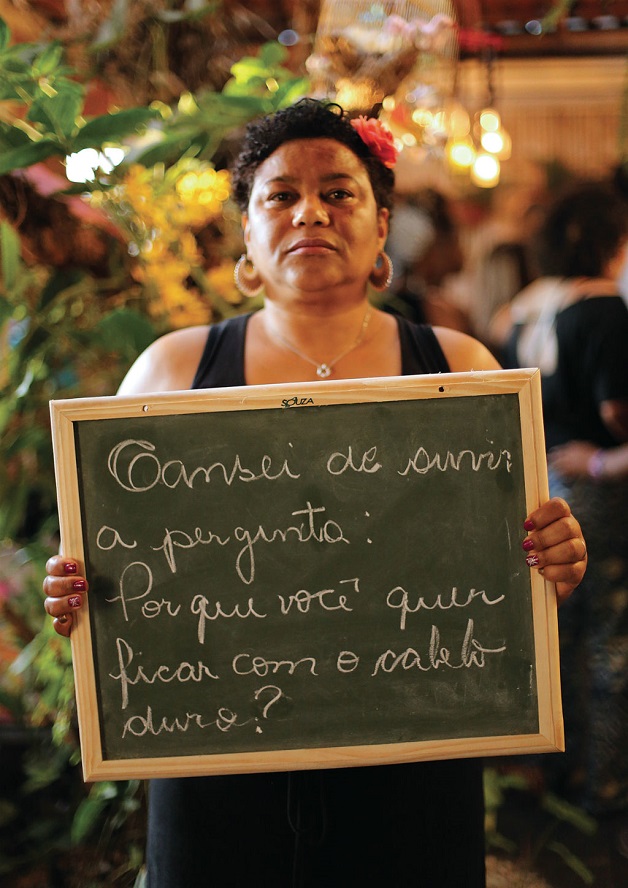 SOUZA
Cansei de ouvir
a pergunta:
Por que você quer
ficar com o cabelo
duro?